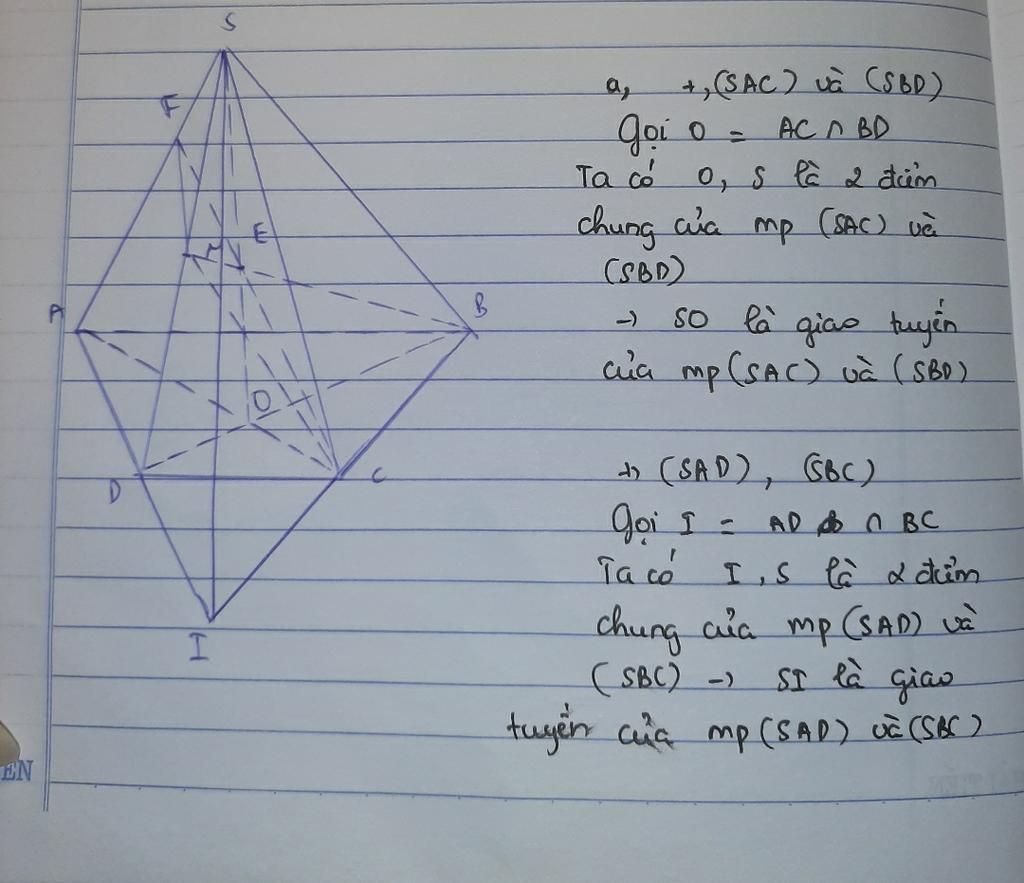 S
F
M
E
A
B
O
D
C
I
a, +, (SAC) và (SBD)
Gọi O = AC ∩ BD
Ta có O, S là 2 điểm
chung của mp (SAC) và
(SBD)
→ SO là giao tuyến
của mp (SAC) và (SBD)
+, (SAD), (SBC)
Gọi I = AD ∩ BC
Ta có I, S là 2 điểm
chung của mp (SAD) và
(SBC) → SI là giao
tuyến của mp (SAD) và (SBC)
EN